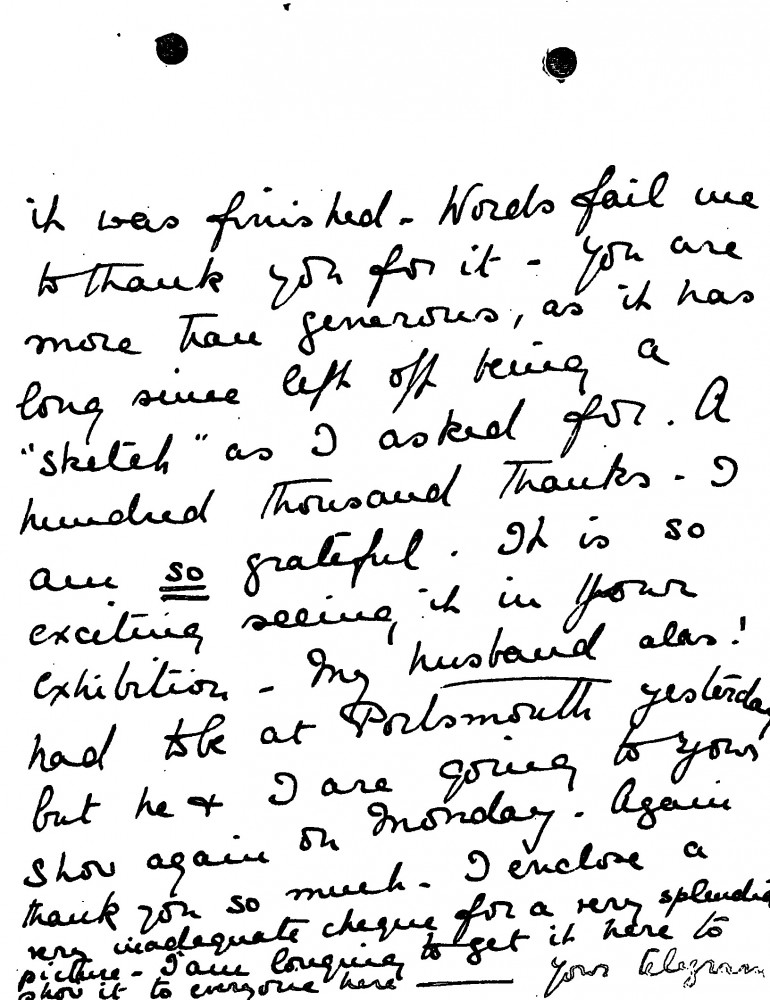 it was finished - Words fail me
to thank you for it - you are
more than generous, as it has
long since left off being a
"sketch" as I asked for. A
hundred thousand thanks - I
am so grateful. It is so
exciting seeing it in your
exhibition - My husband alas!
had to be at Portsmouth yesterday
but he & I are going to your
show again on Monday. Again
thank you so much - I enclose a
very inadequate cheque for a very splendid
picture - I am longing to get it here to
show it to everyone here — your telegram